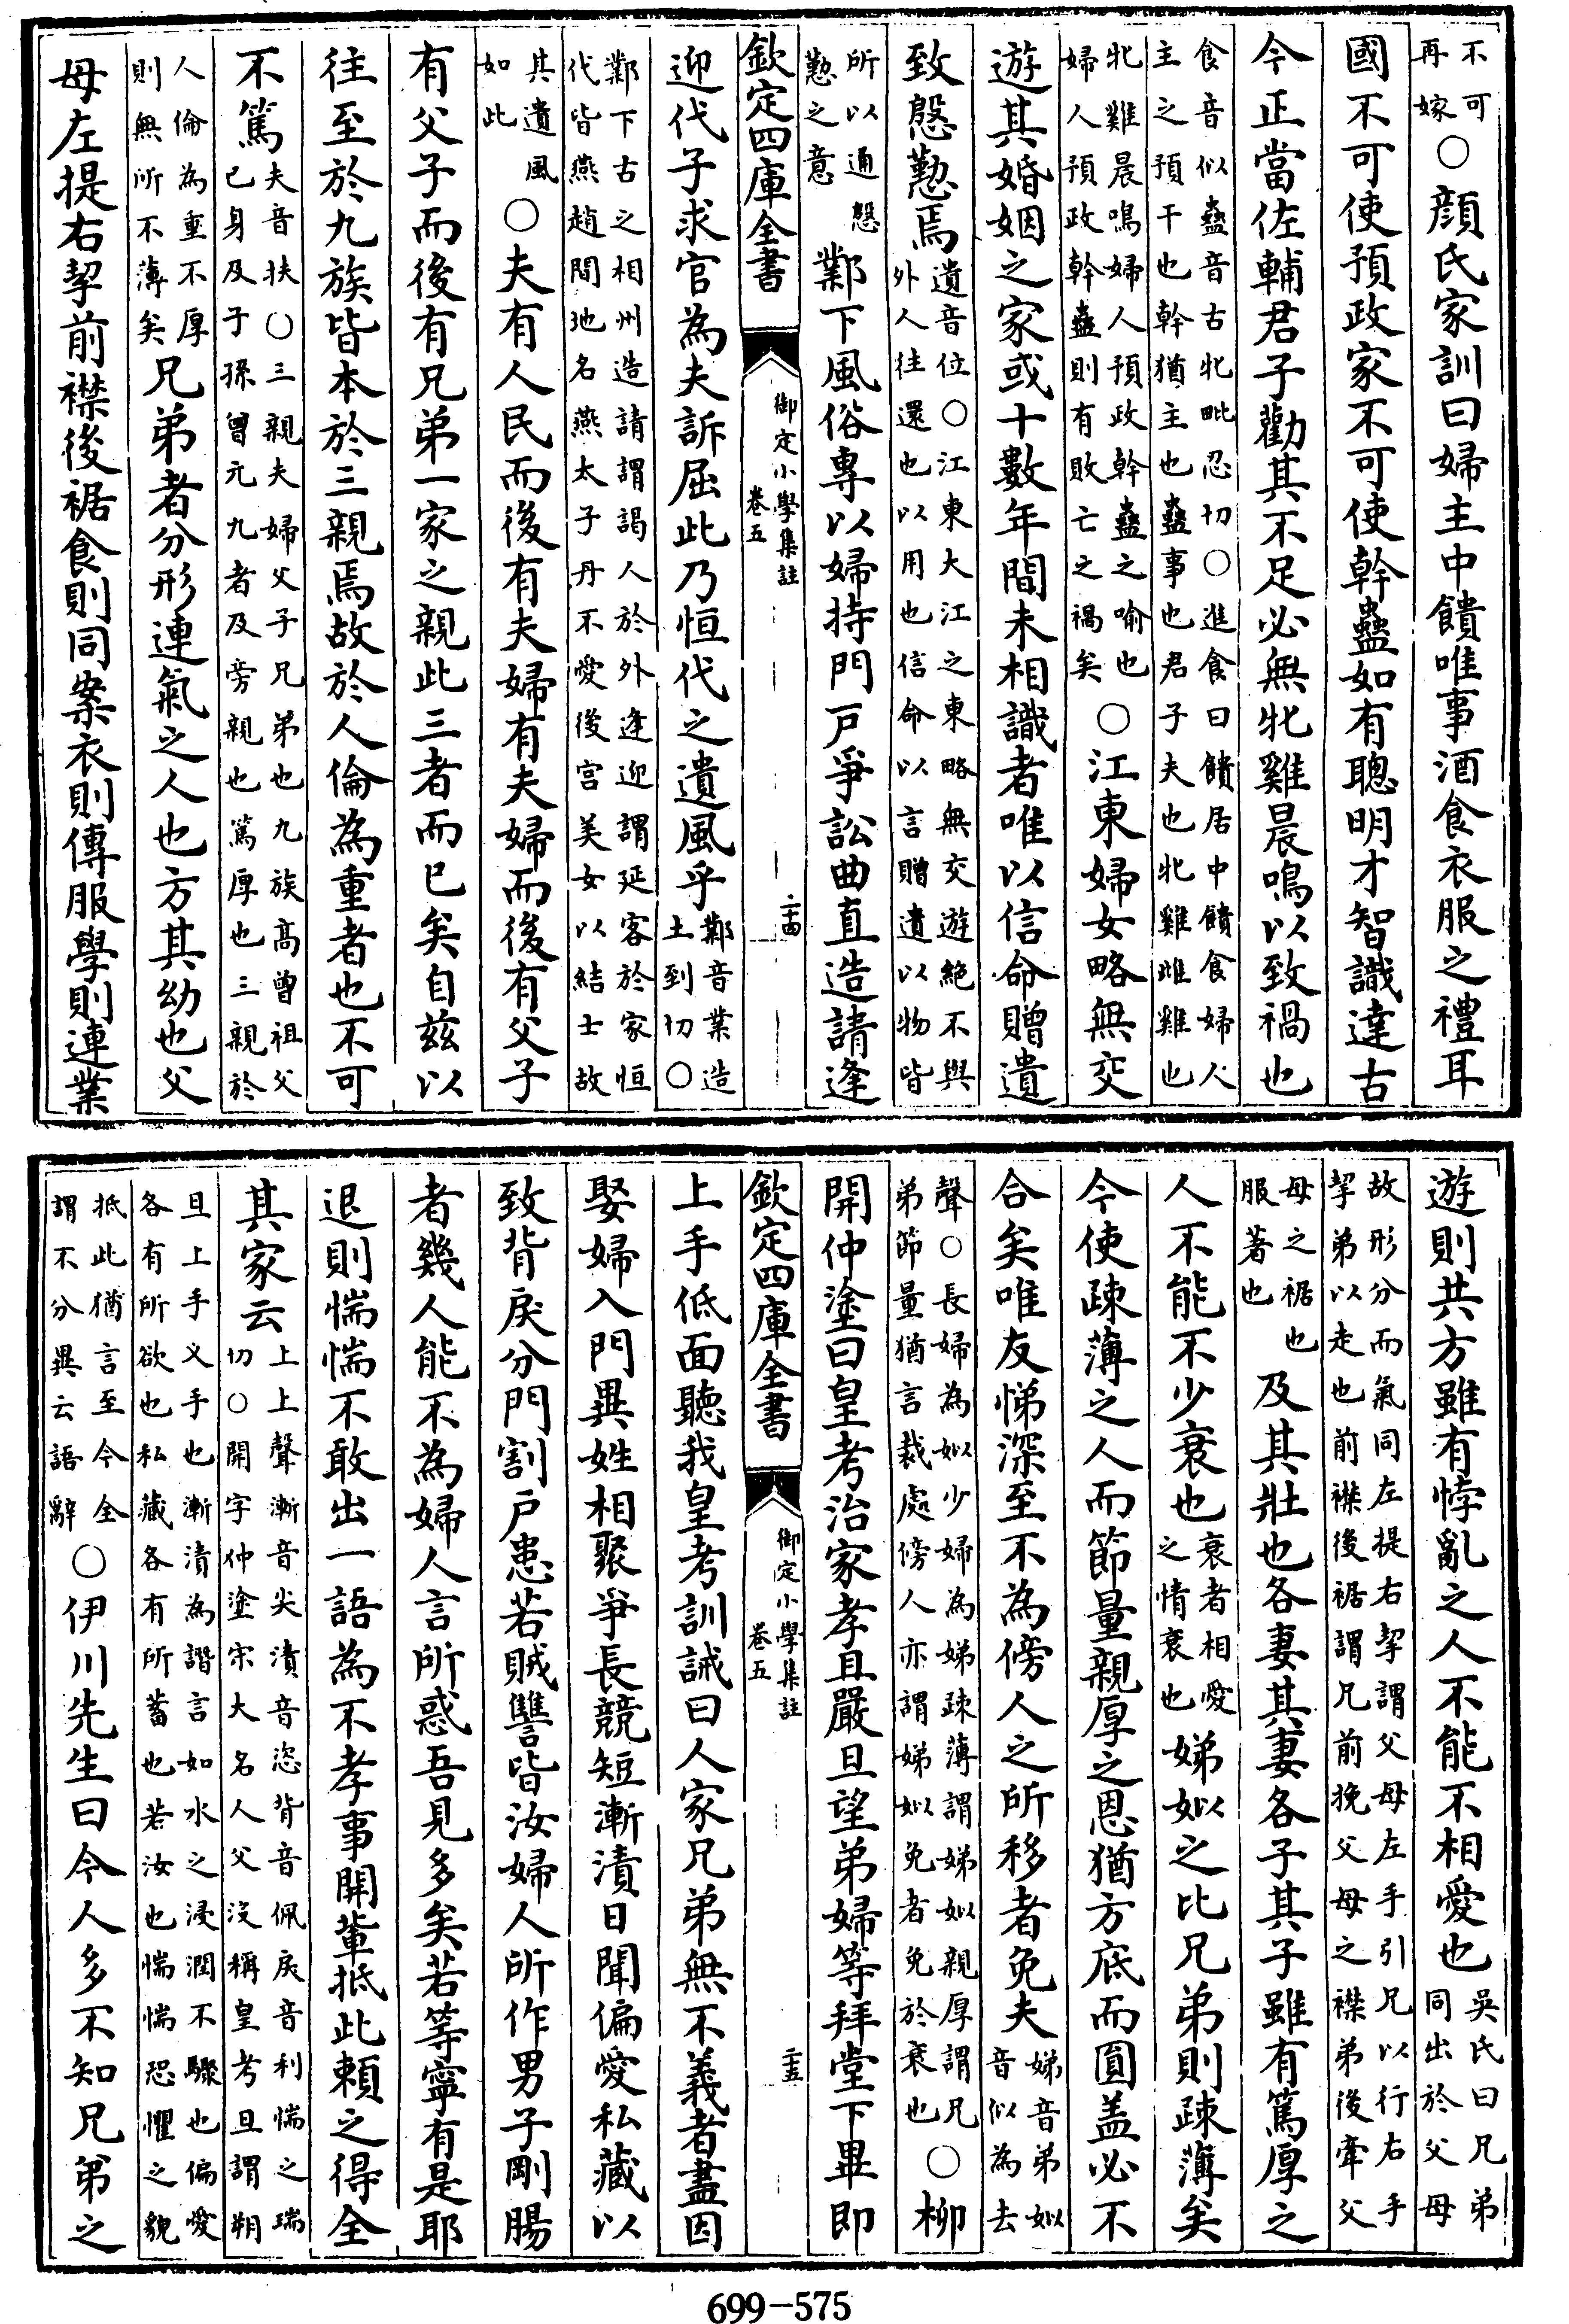 不可
再嫁○顔氏家訓曰婦主中饋唯事酒食衣服之禮耳
國不可使預政家不可使幹蠱如有聰明才智識達古
今正當佐輔君子勸其不足必無牝雞晨鳴以致禍也
食音似蠱音古牝毗忍切○進食曰饋居中饋食婦人
主之預干也幹猶主也蠱事也君子夫也牝雞雌雞也
牝雞晨鳴婦人預政幹蠱之喻也
婦人預政幹蠱則有敗亡之禍矣○江東婦女略無交
遊其婚姻之家或十數年間未相識者唯以信命贈遺
致慇懃焉遺音位○江東大江之東略無交遊絶不與
外人往還也以用也信命以言贈遺以物皆
所以通慇
懃之意鄴下風俗專以婦持門戸爭訟曲直造請逢
欽定四庫全書
御定小學集註
卷五
二十四
迎代子求官為夫訴屈此乃恒代之遺風乎鄴音業造
土到切○
鄴下古之相州造請謂謁人於外逢迎謂延客於家恒
代皆燕趙間地名燕太子丹不愛後宫美女以結士故
其遺風
如此○夫有人民而後有夫婦有夫婦而後有父子
有父子而後有兄弟一家之親此三者而已矣自兹以
往至於九族皆本於三親焉故於人倫為重者也不可
不篤夫音扶○三親夫婦父子兄弟也九族髙曾祖父
已身及子孫曾元九者及旁親也篤厚也三親於
人倫為重不厚
則無所不薄矣兄弟者分形連氣之人也方其幼也父
母左提右挈前襟後裾食則同案衣則傳服學則連業
遊則共方雖有悖亂之人不能不相愛也吳氏曰兄弟
同出於父母
故形分而氣同左提右挈謂父母左手引兄以行右手
挈弟以走也前襟後裾謂兄前挽父母之襟弟後牽父
母之裾也
服著也及其壯也各妻其妻各子其子雖有篤厚之
人不能不少衰也衰者相愛
之情衰也娣姒之比兄弟則疎薄矣
今使疎薄之人而節量親厚之恩猶方底而圓盖必不
合矣唯友悌深至不為傍人之所移者免夫娣音弟姒
音似為去
聲○長婦為姒少婦為娣疎薄謂娣姒親厚謂兄
弟節量猶言裁處傍人亦謂娣姒免者免於衰也○柳
開仲塗曰皇考治家孝且嚴旦望弟婦等拜堂下畢即
欽定四庫全書
御定小學集註
卷五
二十五
上手低面聽我皇考訓誡曰人家兄弟無不義者盡因
娶婦入門異姓相聚爭長競短漸漬日聞偏愛私藏以
致背戾分門割戸患若賊讐皆汝婦人所作男子剛腸
者幾人能不為婦人言所惑吾見多矣若等寧有是耶
退則惴惴不敢出一語為不孝事開輩抵此頼之得全
其家云上上聲漸音尖漬音恣背音佩戾音利惴之瑞
切○開字仲塗宋大名人父沒稱皇考旦謂朔
旦上手义手也漸漬為譖言如水之浸潤不驟也偏愛
各有所欲也私藏各有所蓄也若汝也惴惴恐懼之貌
抵此猶言至今全
謂不分異云語辭○伊川先生曰今人多不知兄弟之
699-575